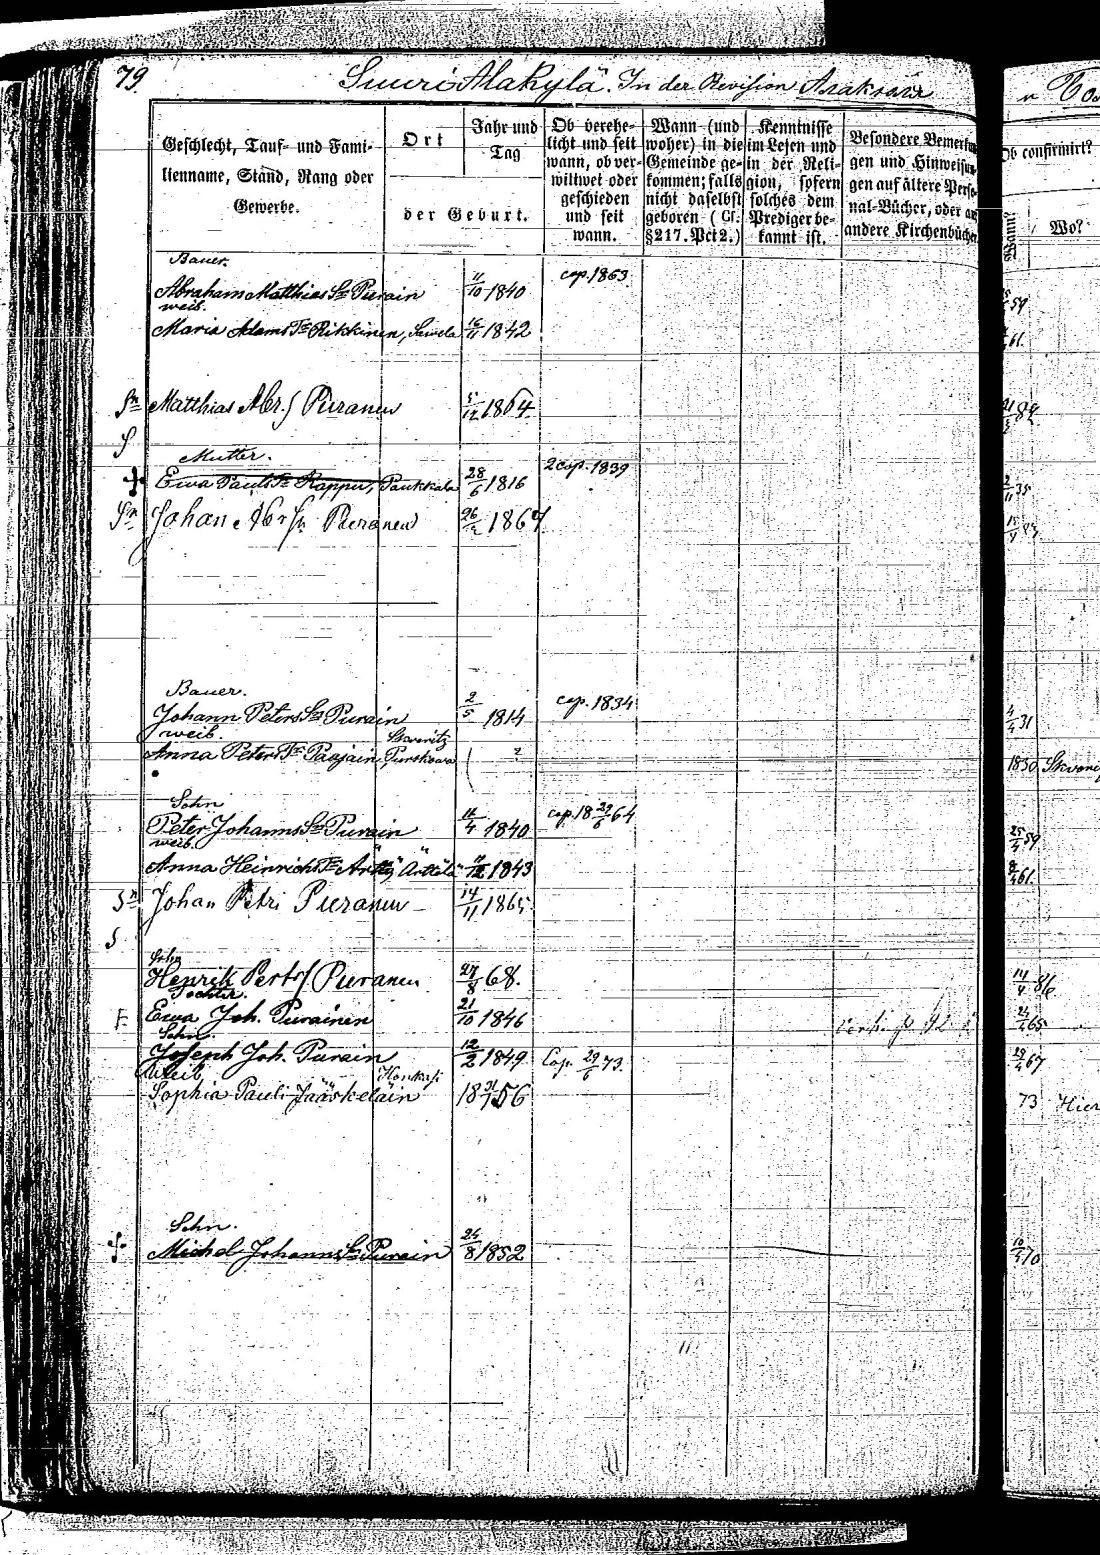 79
Suuri Alakylä. In der Revision
Geschlecht, Tauf- und Fami-
lienname, Stand, Rang oder
Gewerbe.
Ort
der Geburt.
Jahr und
Tag
Ob verehe-
licht und seit
wann, ob ver-
wittwet oder
geschieden
und seit
wann.
Wann (und
woher) in die
Gemeinde ge-
kommen; falls
nicht daselbst
geboren (Cf.
§217. Pct 2.)
Kenntnisse
im Lesen und
in der Reli-
gion, sofern
solches dem
Prediger be-
kannt ist.
Besondere Bemerkun-
gen und Hinweisun-
gen auf ältere Perso-
nal-Bücher, oder an
andere Kirchenbücher
Ob confirmirt?
Wann?
Wo?
Bauer.
Abraham Matthias Sn Purain 11/10 1840 cop. 1863 59
weib.
Maria Adams Tr Rikkinen, 16/11 1842 61
Sn Matthias Abr. S Puranen 5/12 1864
S
Mutter.
Ewa Pauls Tr Rappu, Paukkala 28/6 1816 2 cop. 1839 35
Sn Johan Abr Sn Puranen 1867
Bauer.
Johann Peters Sn Purain 2/5 1814 cop. 1834 4/4 31
weib. Skworitz
Anna Peters Tr Paajain Purskowa ? 1830 Skworitz
Sohn
Peter Johanns Sn Purain 1840 cop. 18 29/6 64 25/4 59
weib.
Anna Heinrichs Tr 1843 8/4 61
Sn Johan Petri Puranen 14/11 1865
S
Sohn
Henrik Petri S Puranen 27/8 68. 14/4 86
Tochter.
F. Ewa Joh. Purainen 21/10 1846 65
Sohn.
Joseph Joh. Purain 12/2 1849 Cop. 29/6 73. 67
Weib
Sophia Pauli Jääskeläin 56 73
Sohn.
Michel Johanns Sn Purain 24/8 1852 70